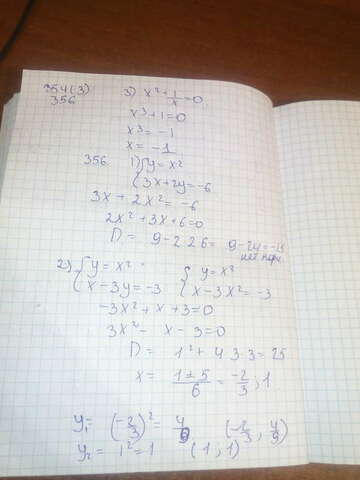 354(3) 3) x² + 1/x = 0
356
x³ + 1 = 0
x³ = -1
x = -1
356 1) { y = x²
{ 3x + 2y = -6
3x + 2x² = -6
2x² + 3x + 6 = 0
D = 9 - 2·2·6 = 9 - 24 = -15
нет
2) { y = x² { y = x²
{ x - 3y = -3 { x - 3x² = -3
-3x² + x + 3 = 0
3x² - x - 3 = 0
D = 1² + 4·3·3 = 25
x = (1 ± 5)/6 = -2/3; 1
y₁ = (-2/3)² = 4/9 (-2/3; 4/9)
y₂ = 1² = 1 (1; 1)